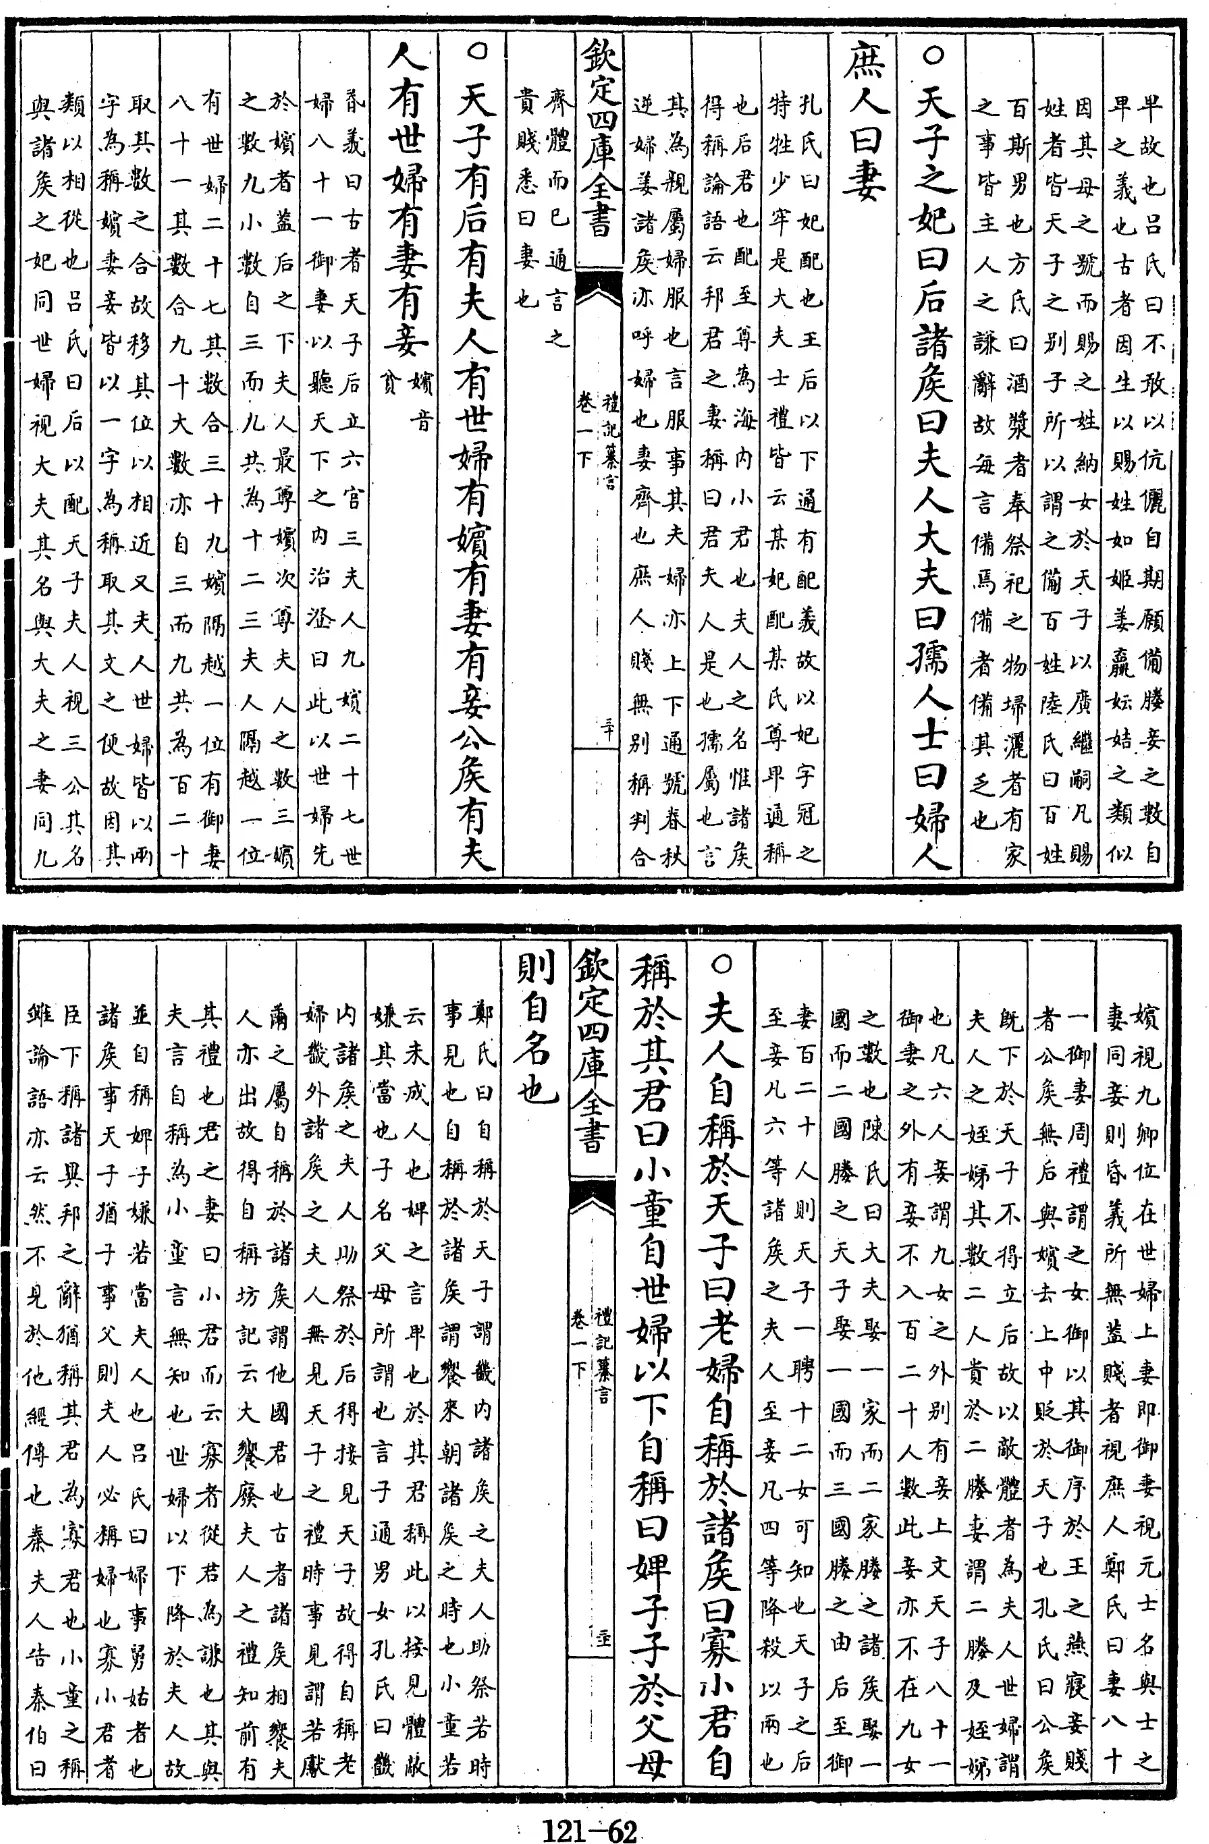 早故也呂氏曰不敢以伉儷自期願備媵妾之數自
早之義也古者因生以賜姓如姬姜嬴妘姞之類似
因其母之號而賜之姓納女於天子以廣繼嗣凡賜
姓者皆天子之別子所以謂之備百姓陸氏曰百姓
百斯男也方氏曰酒漿者奉祭祀之物埽灑者有家
之事皆主人之謙辭故每言備焉備者備其乏也
○天子之妃曰后諸矦曰夫人大夫曰孺人士曰婦人
庶人曰妻
孔氏曰妃配也王后以下通有配義故以妃字冠之
特牲少牢是大夫士禮皆云某妃配某氏尊卑通稱
也后君也配至尊為海內小君也夫人之名惟諸矦
得稱論語云邦君之妻稱曰君夫人是也孺屬也言
其為親屬婦服也言服事其夫婦亦上下通號春秋
逆婦姜諸矦亦呼婦也妻齊也庶人賤無別稱判合
欽定四庫全書
禮記纂言
卷一下
三十
齊體而已通言之
貴賤悉曰妻也
○天子有后有夫人有世婦有嬪有妻有妾公矦有夫
人有世婦有妻有妾
嬪音
貧
昏義曰古者天子后立六官三夫人九嬪二十七世
婦八十一御妻以聽天下之內治澄曰此以世婦先
於嬪者蓋后之下夫人最尊嬪次尊夫人之數三嬪
之數九小數自三而九共為十二三夫人隔越一位
有世婦二十七其數合三十九嬪隔越一位有御妻
八十一其數合九十大數亦自三而九共為百二十
取其數之合故移其位以相近又夫人世婦皆以兩
字為稱嬪妻妾皆以一字為稱取其文之便故因其
類以相從也呂氏曰后以配天子夫人視三公其名
與諸矦之妃同世婦視大夫其名與大夫之妻同九
嬪視九卿位在世婦上妻即御妻視元士名與士之
妻同妾則昏義所無蓋賤者視庶人鄭氏曰妻八十
一御妻周禮謂之女御以其御序於王之燕寢妾賤
者公矦無后與嬪去上中貶於天子也孔氏曰公矦
旣下於天子不得立后故以敵體者為夫人世婦謂
夫人之姪娣其數二人貴於二媵妻謂二媵及姪娣
也凡六人妾謂九女之外別有妾上文天子八十一
御妻之外有妾不入百二十人數此妾亦不在九女
之數也陳氏曰大夫娶一家而二家媵之諸矦娶一
國而二國媵之天子娶一國而三國媵之由后至御
妻百二十人則天子一聘十二女可知也天子之后
至妾凡六等諸矦之夫人至妾凡四等降殺以兩也
○夫人自稱於天子曰老婦自稱於諸矦曰寡小君自
稱於其君曰小童自世婦以下自稱曰婢子子於父母
欽定四庫全書
禮記纂言
卷一下
則自名也
鄭氏曰自稱於天子謂畿內諸矦之夫人助祭若時
事見也自稱於諸矦謂饗來朝諸矦之時也小童若
云未成人也婢之言卑也於其君稱此以接見體敵
嫌其當也子名父母所謂也言子通男女孔氏曰畿
內諸矦之夫人助祭於后得接見天子故得自稱老
婦畿外諸矦之夫人無見天子之禮時事見謂若獻
繭之屬自稱於諸矦謂他國君也古者諸矦相饗夫
人亦出故得自稱坊記云大饗廢夫人之禮知前有
其禮也君之妻曰小君而云寡者從君為謙也其與
夫言自稱為小童言無知也世婦以下降於夫人故
並自稱婢子嫌若當夫人也呂氏曰婦事舅姑者也
諸矦事天子猶子事父則夫人必稱婦也寡小君者
臣下稱諸異邦之辭猶稱其君為寡君也小童之稱
雖論語亦云然不見於他經傳也秦夫人告秦伯曰
121-62